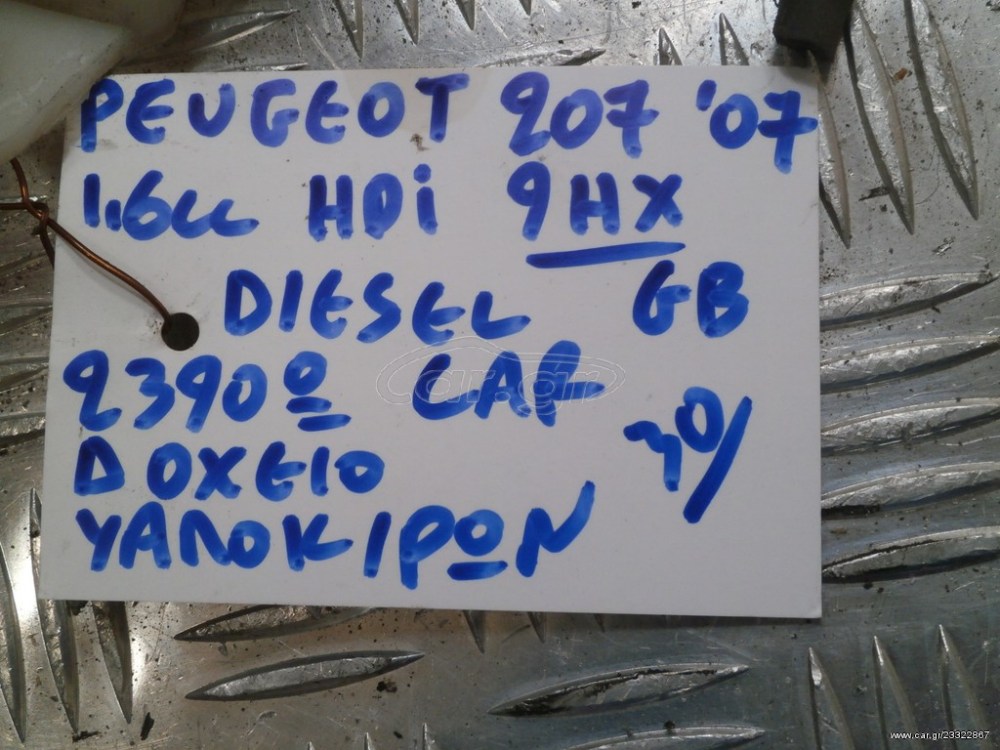 PEUGEOT 207 '07
1,6cc HDi 9HX
DIESEL GB
2390º CAR
ΔΟΧΕΙΟ 30/
ΥΑΛΟΚΙΡΩΝ
car.gr
www.car.gr/23322867